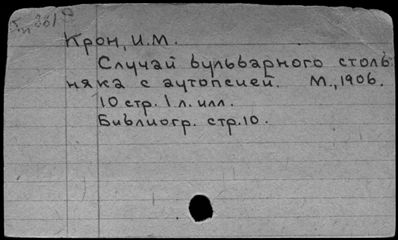 Крон, И.М.
Случай бульварного столь
няка с аутопсией. М., 1906.
10 стр. 1 л. илл.
Библиогр. стр. 10.